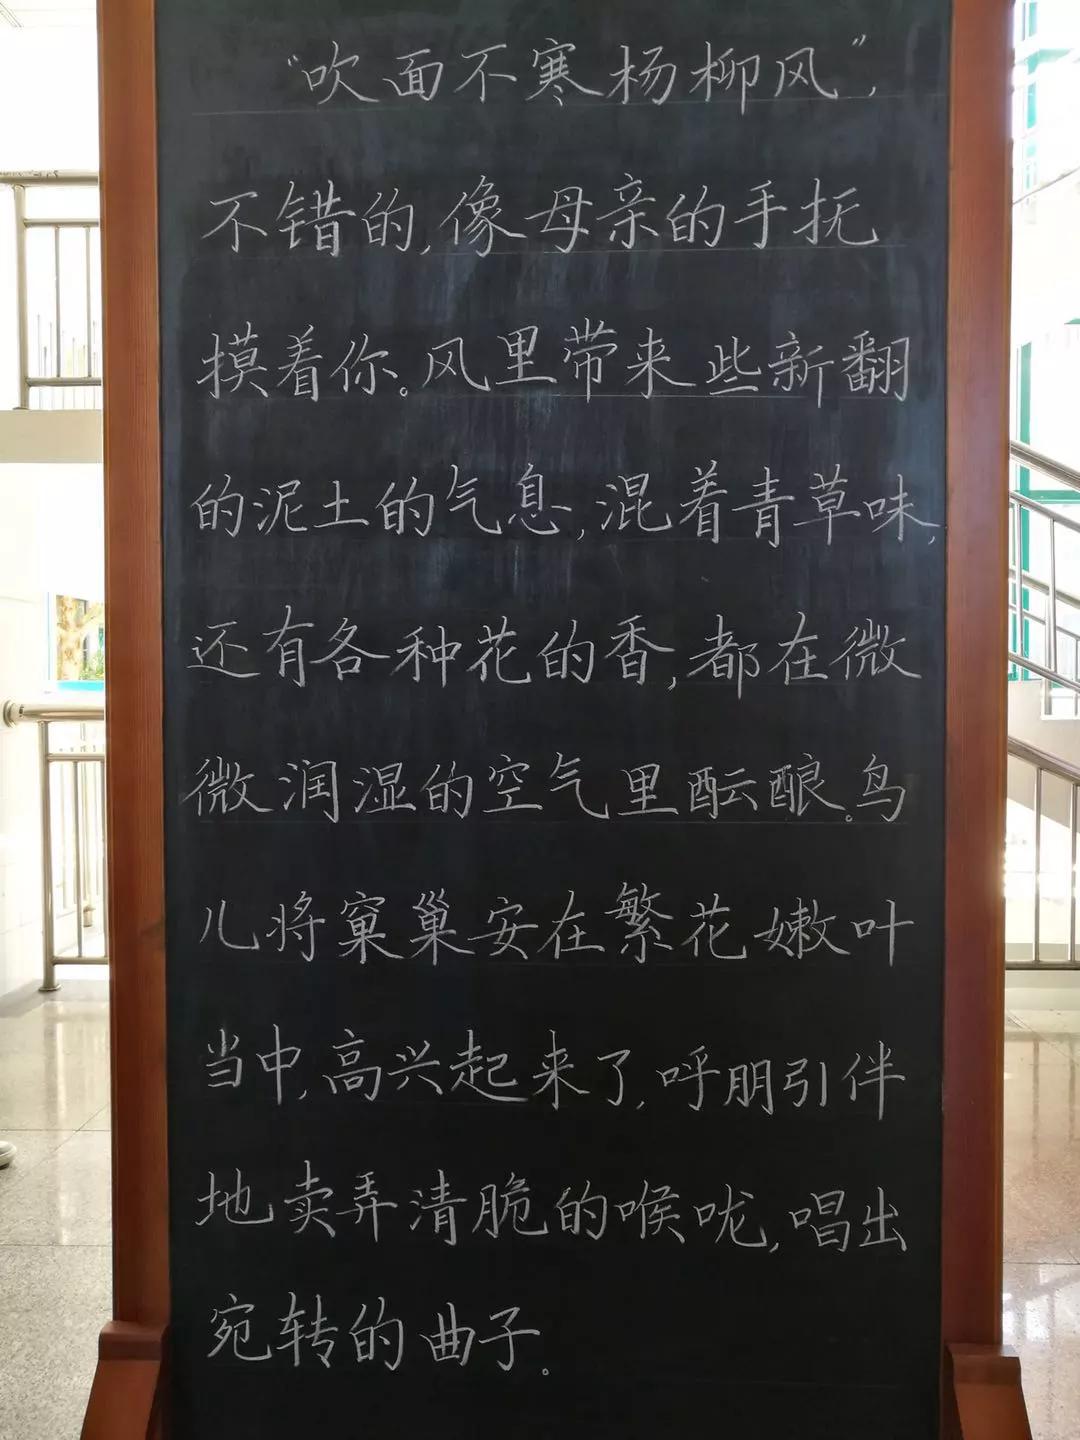 “吹面不寒杨柳风”，
不错的，像母亲的手抚
摸着你。风里带来些新翻
的泥土的气息，混着青草味，
还有各种花的香，都在微
微润湿的空气里酝酿。鸟
儿将窠巢安在繁花嫩叶
当中，高兴起来了，呼朋引伴
地卖弄清脆的喉咙，唱出
宛转的曲子。